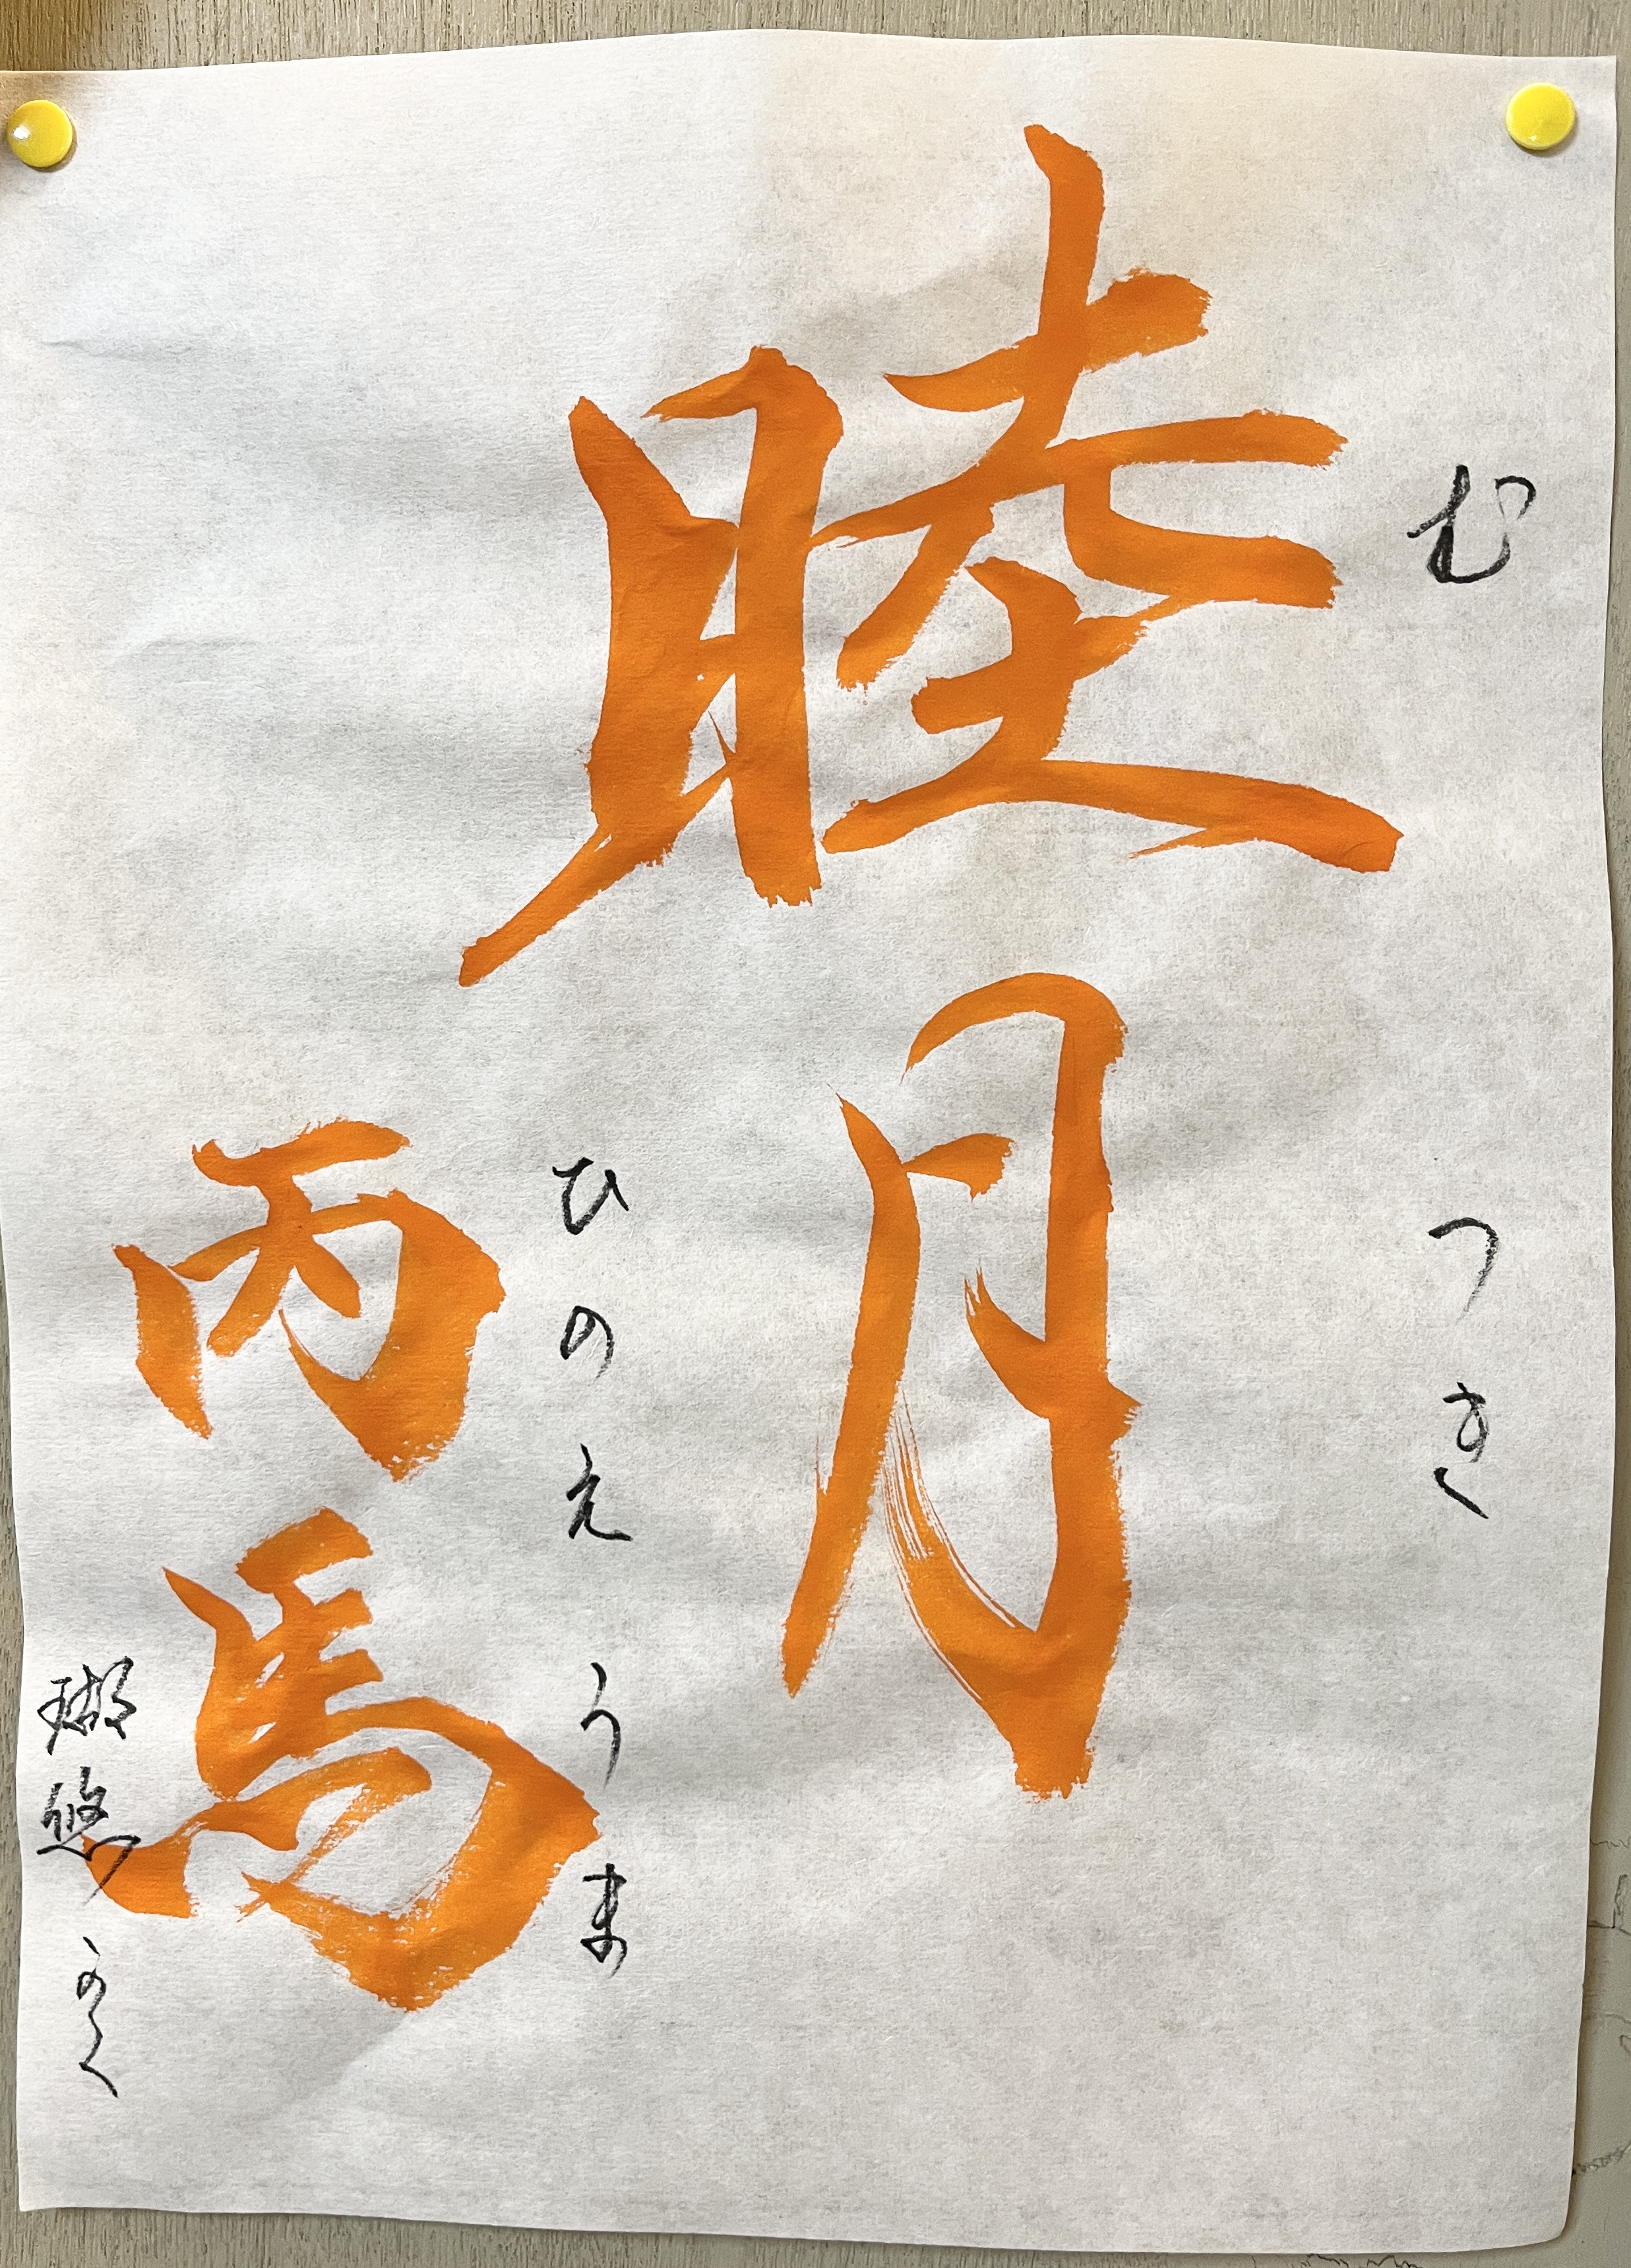 むつき
睦月
ひのえうま
丙馬
瑚悠